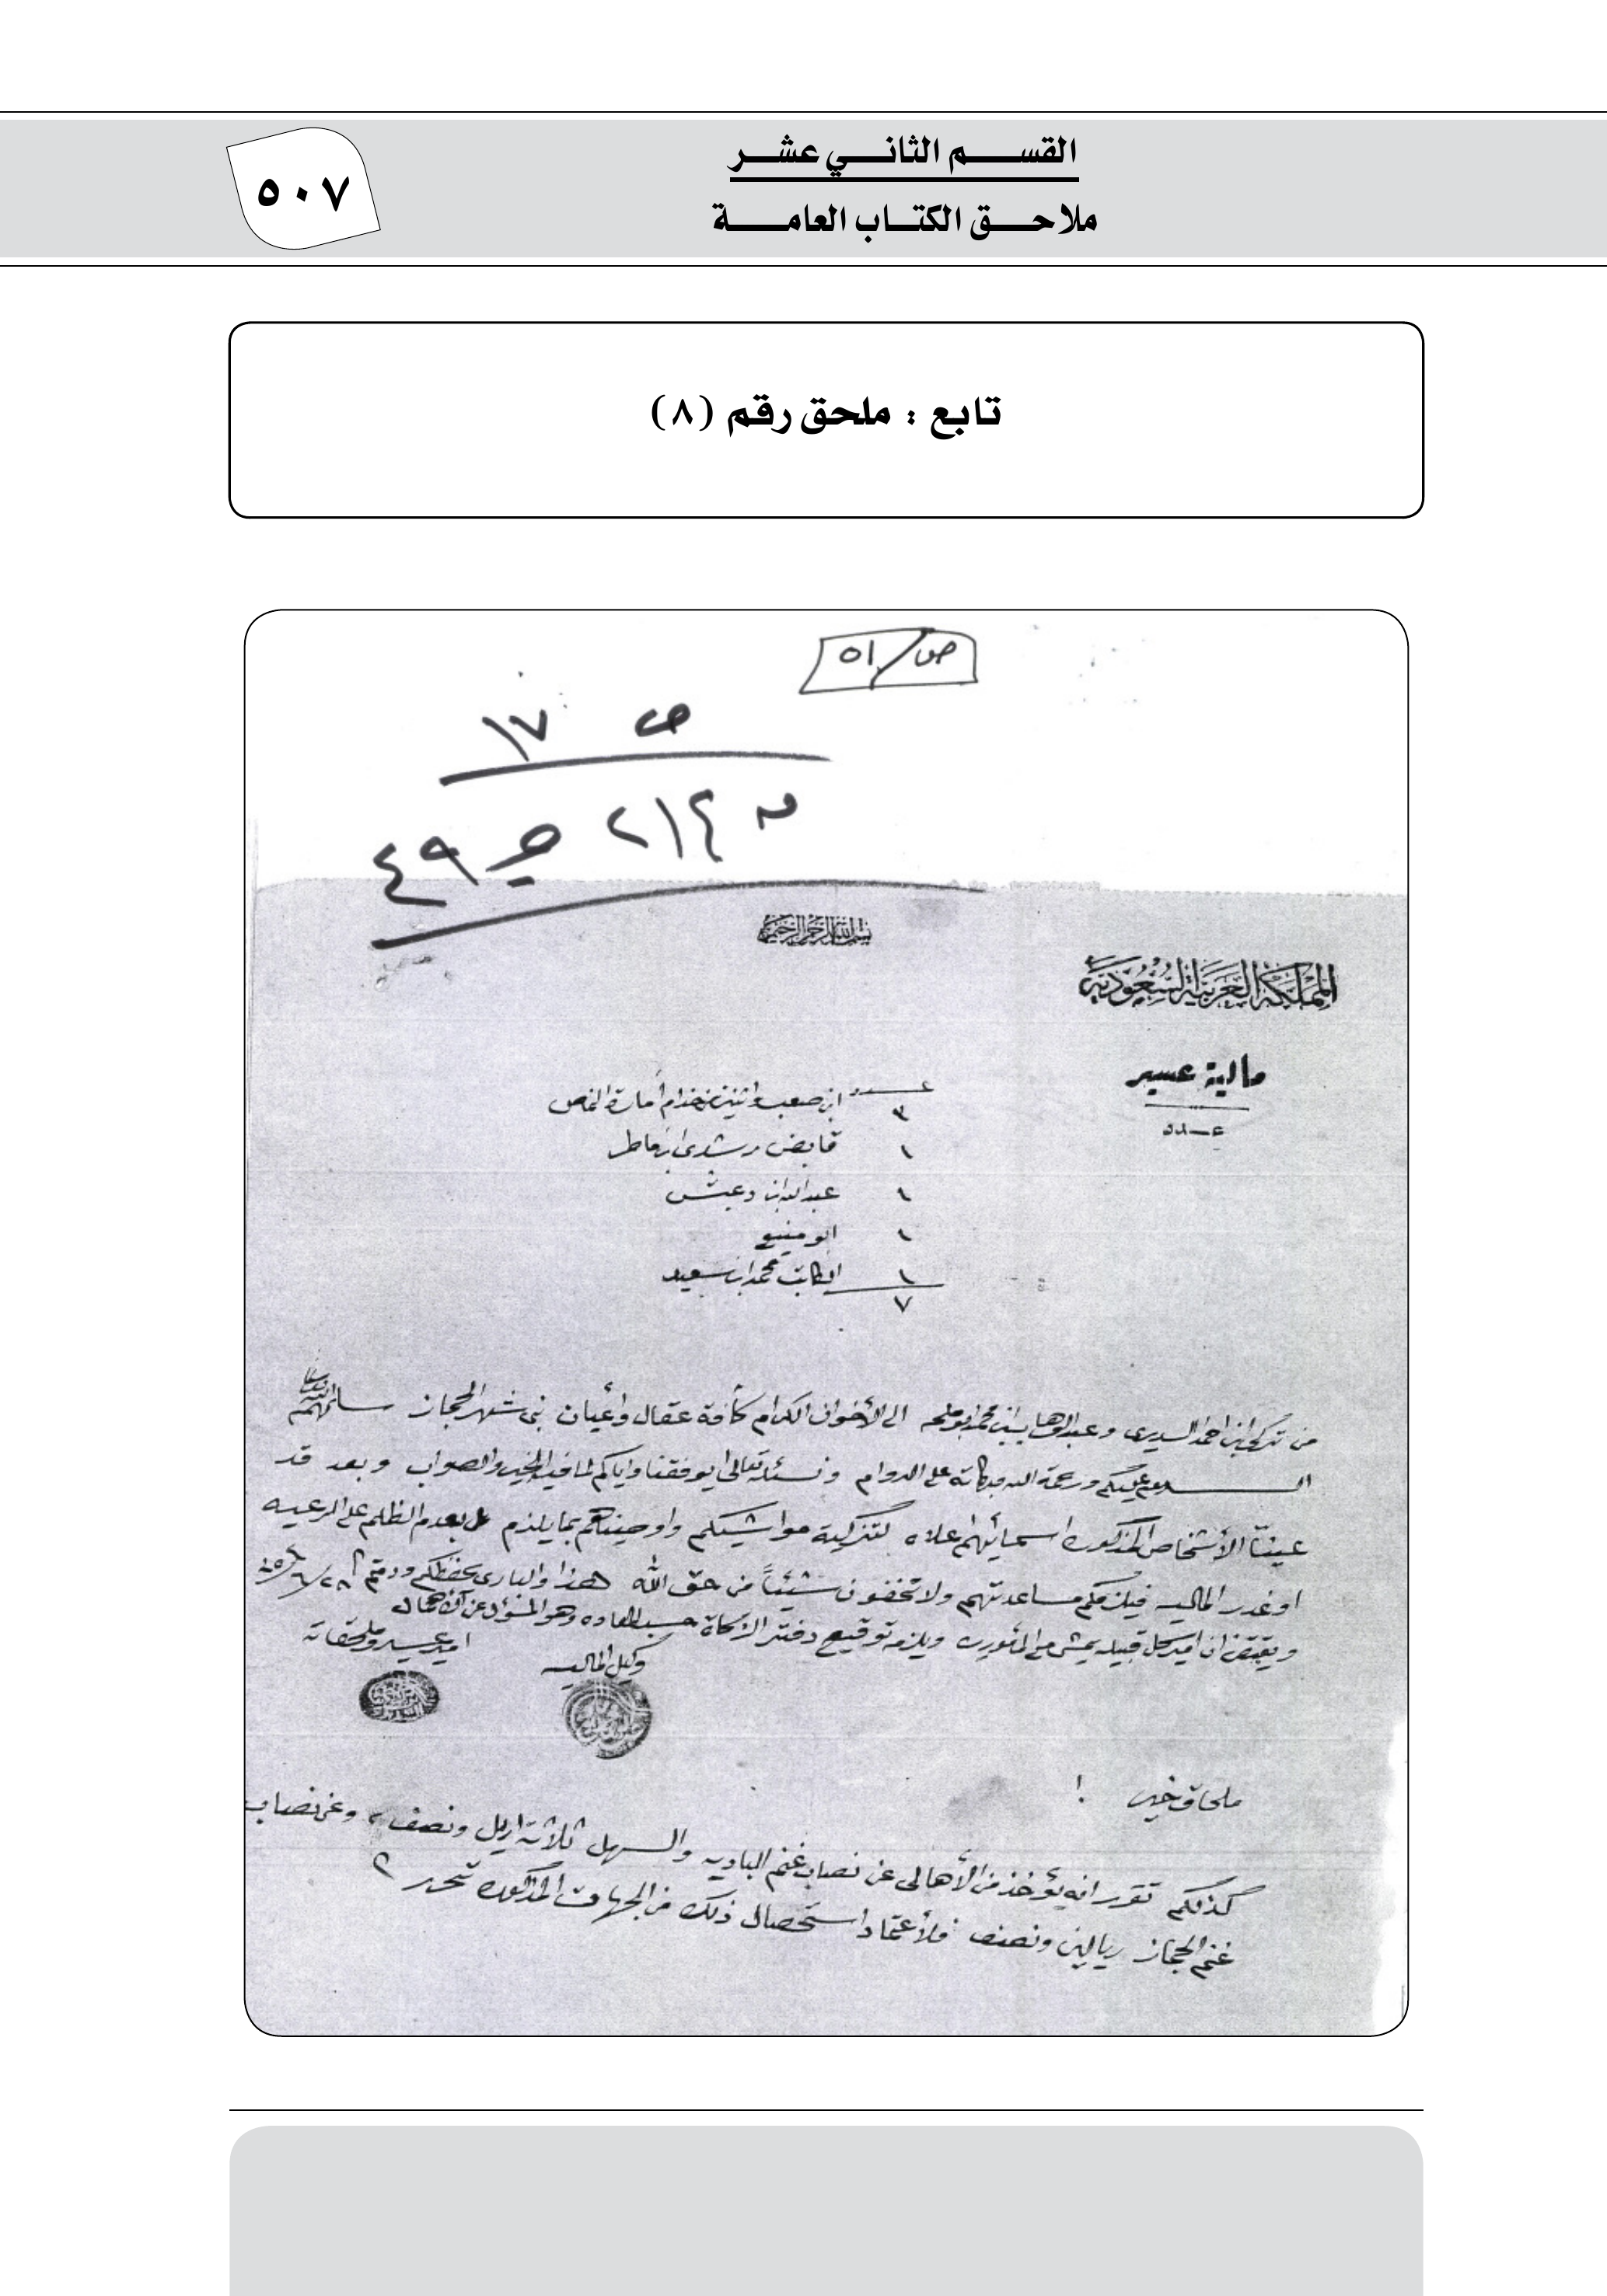 القسم الثاني عشر
ملاحق الكتاب العامة
٥٠٧
تابع : ملحق رقم (٨)
ص/٥١
ص ١٧
٤٩
بسم الله الرحمن الرحيم
المملكة العربية السعودية
مالية عسير
عدد
عدد
٣ ابن صعب واثنين من خدام أمارة النماص
١ قابض رشدى ابن عاطر
١ عبدالله ابن دعبش
١ ابو منيع
١ الكاتب محمد ابن سعيد
٧
من تركي ابن احمد السديرى وعبدالوهاب ابن محمد ابو ملحه الى الأخوان الكرام كأفة عقال وأعيان بنى شهر الحجاز سلمهم الله تعالى
السلام عليكم ورحمة الله وبركاته على الدوام ونسئله تعالى ان يوفقنا واياكم لما فيه الخير والصواب وبعد قد
عينّا الأشخاص المذكوره اسمائهم اعلاه لتزكية مواشيكم واوصيناهم بما يلزم بعدم الظلم على الرعيه
او غدر الماليه فيلزمكم مساعدتهم ولا تخفون شيئاً من حق الله هذا والبارى يحفظكم ودمتم
ويقتضى ان امير كل قبيله يمشى مع المأموره ويلزمه توقيع دفتر الزكاة حسب العاده وهو المسؤل عن
وكيل الماليه
امير عسير وملحقاته
ملحاق خير !
كذلكم تقرر انه يؤخذ من الأهالى عن نصاب غنم الباديه والسهل ثلاثة اريل ونصف ، وعن نصاب
غنم الحجاز ريالين ونصف فلأعتماد استحصال ذلك من الجهات المذكوره تحرر